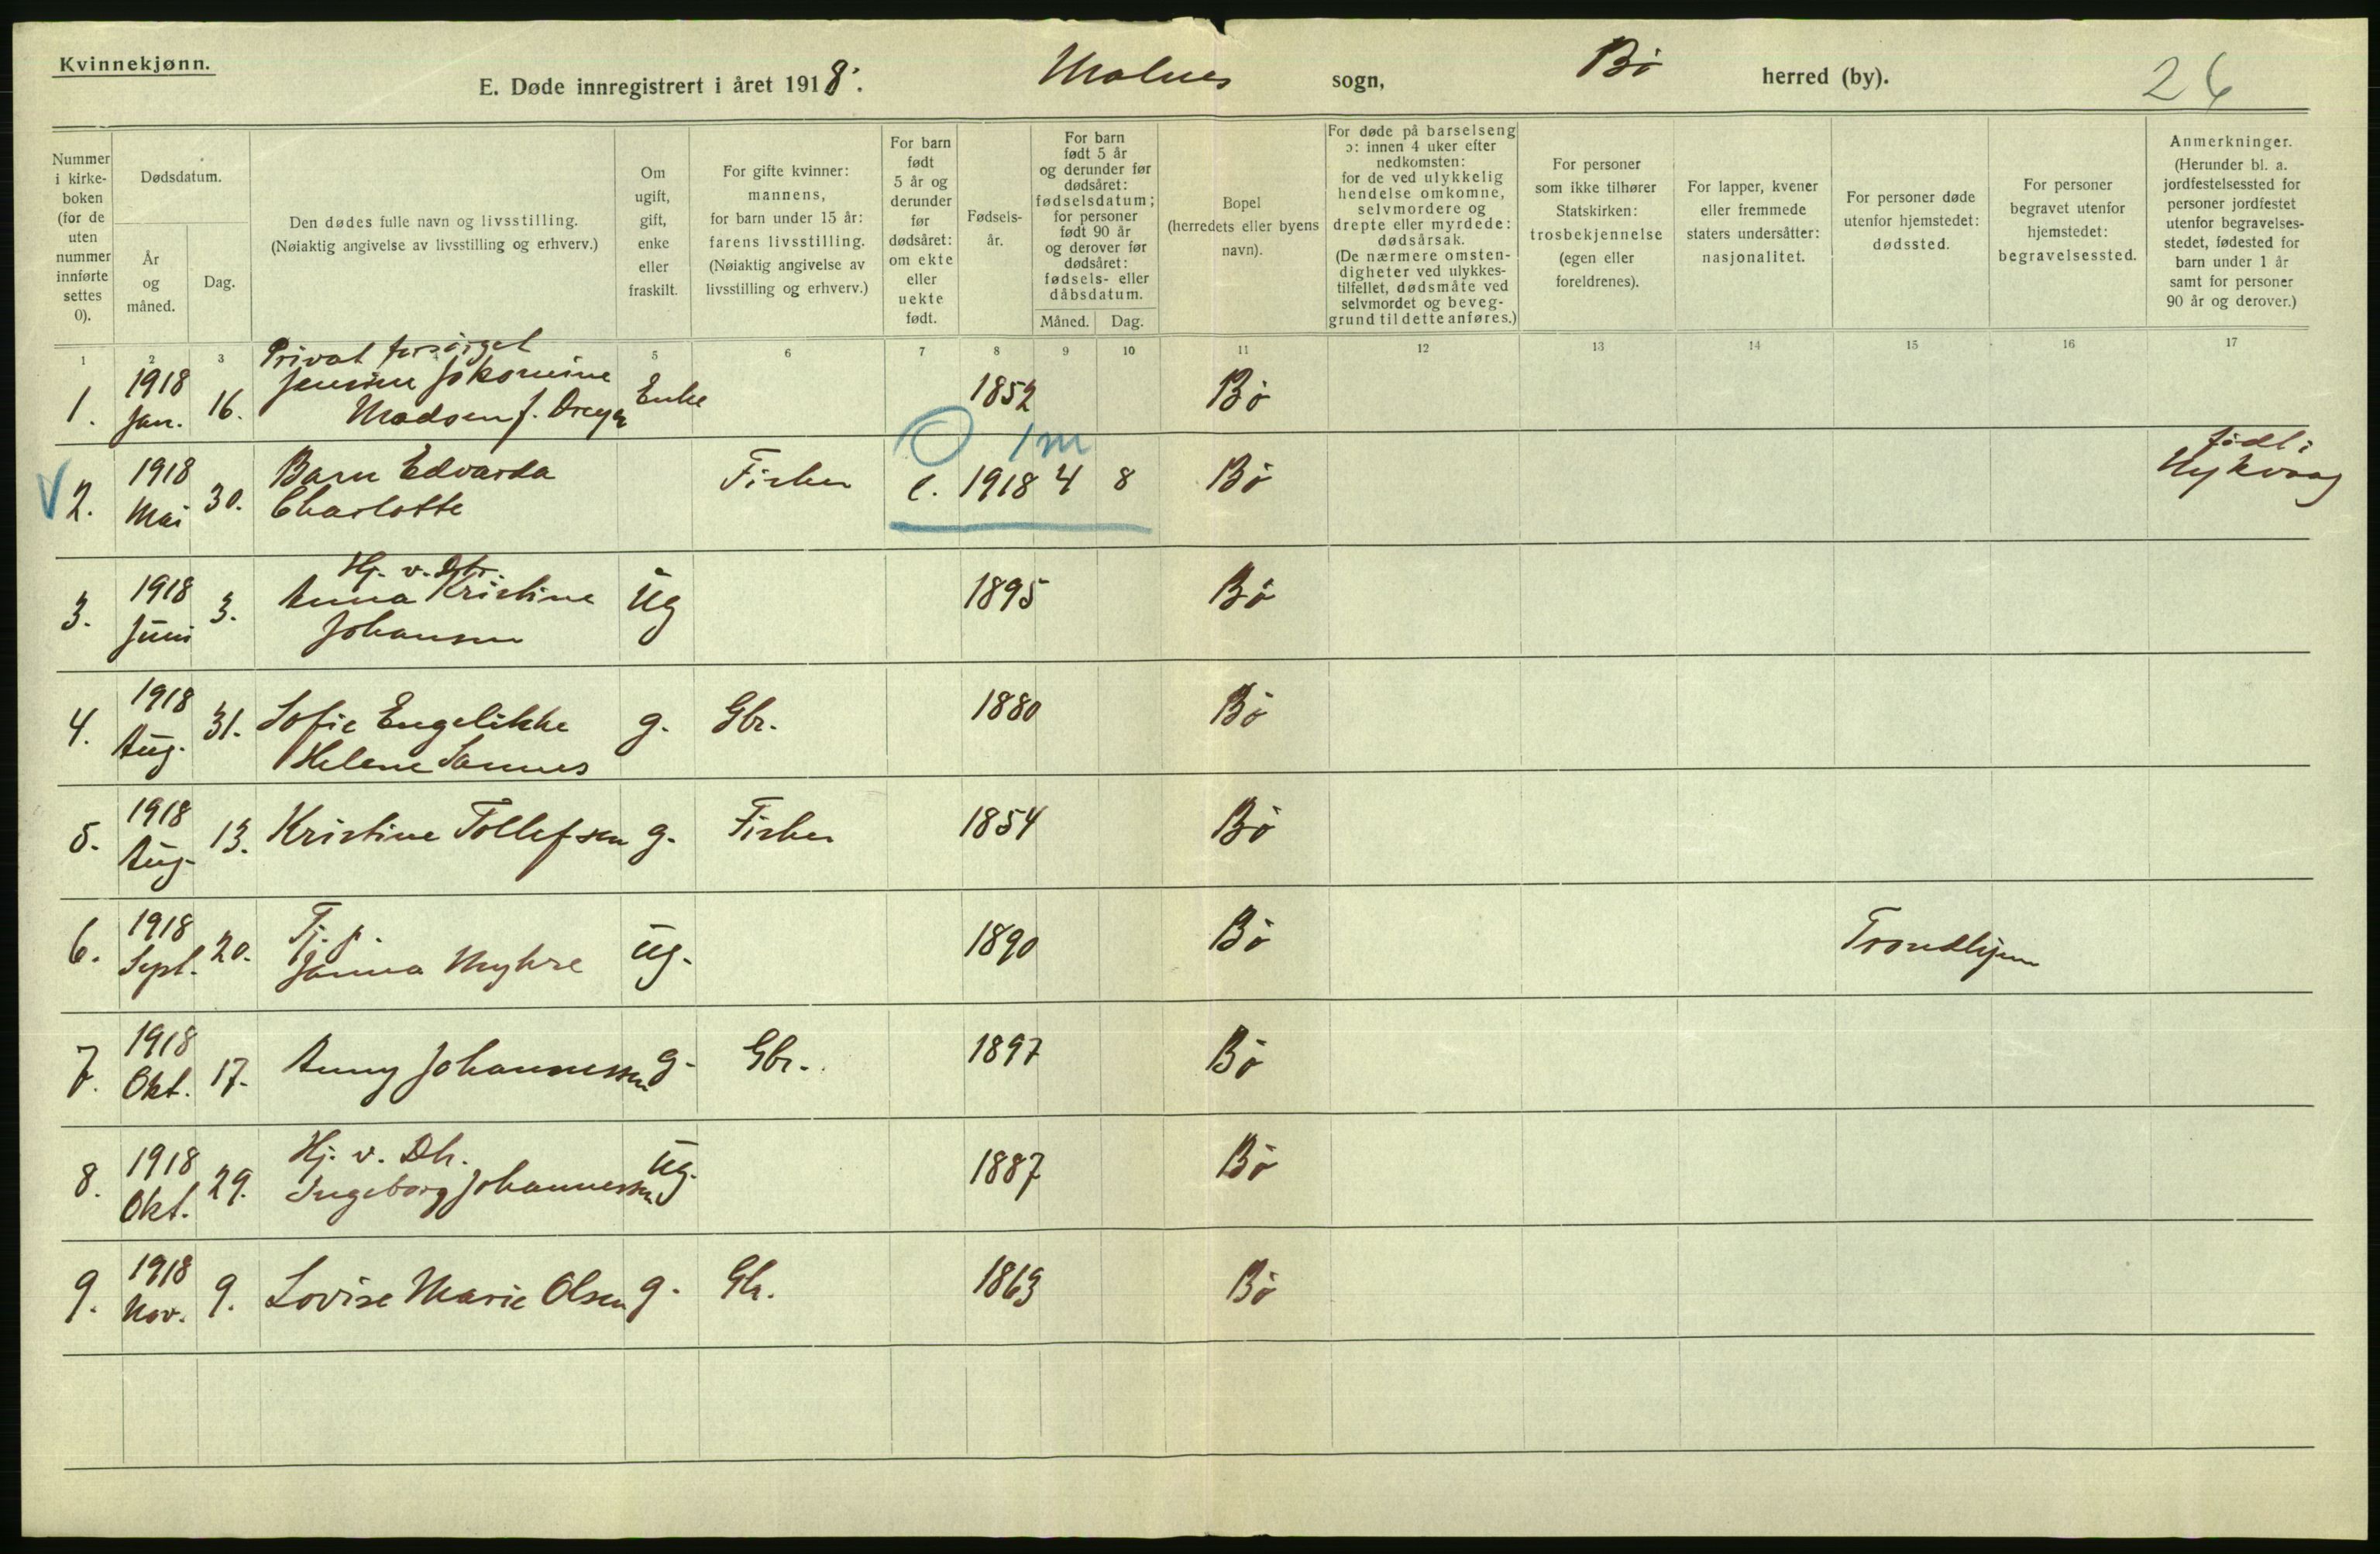 Kvinnekjønn.
E. Døde innregistrert i året 1918. Malnes sogn, Bø herred (by). 26
Nummer i kirke-boken (for de uten nummer innførte settes 0).
Dødsdatum.
År og måned.
Dag.
Den dødes fulle navn og livsstilling.
(Nøiaktig angivelse av livsstilling og erhverv.)
Om ugift, gift, enke eller fraskilt.
For gifte kvinner: mannens, for barn under 15 år: farens livsstilling. (Nøiaktig angivelse av livsstilling og erhverv.)
For barn født 5 år og derunder før dødsåret: om ekte eller uekte født.
Fødsels-år.
For barn født 5 år og derunder før dødsåret: fødselsdatum; for personer født 90 år og derover før dødsåret: fødsels- eller dåbsdatum.
Måned. Dag.
Bopel (herredets eller byens navn).
For døde på barselseng ɔ: innen 4 uker efter nedkomsten: for de ved ulykkelig hendelse omkomne, selvmordere og drepte eller myrdede: dødsårsak. (De nærmere omsten-digheter ved ulykkes-tilfellet, dødsmåte ved selvmordet og beveg-grund til dette anføres.)
For personer som ikke tilhører Statskirken: trosbekjennelse (egen eller foreldrenes).
For lapper, kvener eller fremmede staters undersåtter: nasjonalitet.
For personer døde utenfor hjemstedet: dødssted.
For personer begravet utenfor hjemstedet: begravelsessted.
Anmerkninger. (Herunder bl. a. jordfestelsessted for personer jordfestet utenfor begravelses-stedet, fødested for barn under 1 år samt for personer 90 år og derover.)
1 2 3 5 6 7 8 9 10 11 12 13 14 15 16 17
Privat forsørget
1. 1918 Jan. 16. Jensine Jakomine Madsen f. Dreyer Enke 1852 Bø
O 1 m
V 2. 1918 Mai 30. Barn Edvarda Charlotte Fisker e. 1918 4 8 Bø født i Nykvaag
Hj. v. Dtr.
3. 1918 Juni 3. Anna Kristine Johansen Ug 1895 Bø
4. 1918 Aug. 31. Sofie Engelikke Helene Sannes g. Gbr. 1880 Bø
5. 1918 Aug. 13. Kristine Tollefsen g. Fisker 1854 Bø
6. 1918 Sept. 20. Tj. p. Janna Myhre Ug. 1890 Bø Trondhjem
7. 1918 Okt. 17. Anny Johannessen g. Gbr. 1897 Bø
8. 1918 Okt. 29. Hj. v. Dtr. Ingeborg Johannessen Ug. 1887 Bø
9. 1918 Nov. 9. Lovise Marie Olsen g. Gbr. 1863 Bø